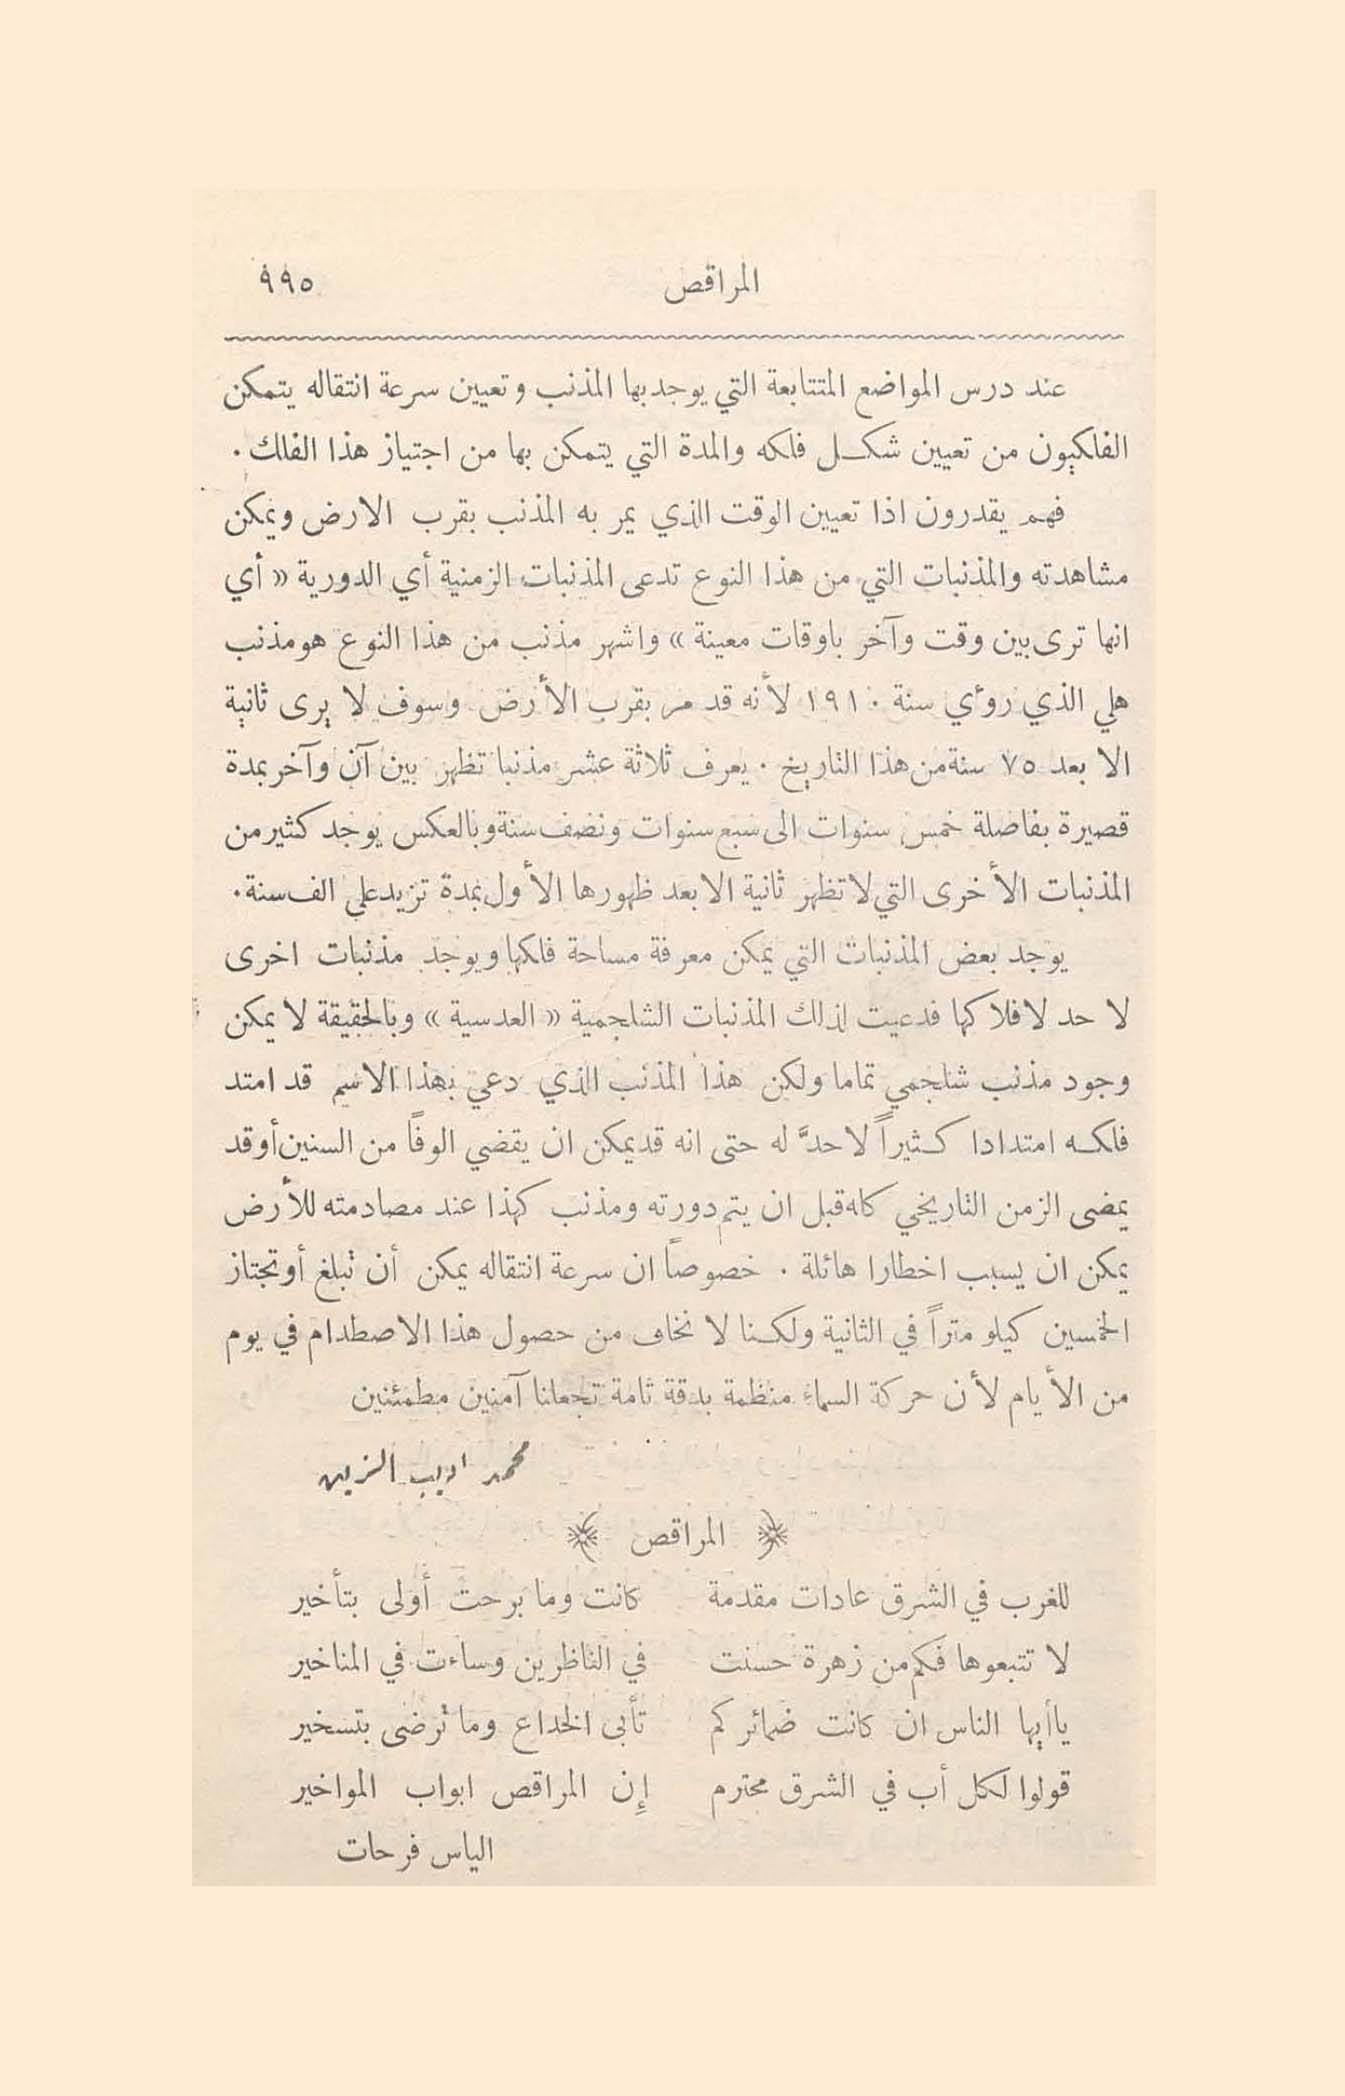 المراقص ٩٩٥
عند درس المواضع المتتابعة التي يوجد بها المذنب وتعيين سرعة انتقاله يتمكن
الفلكيون من تعيين شكل فلكه والمدة التي يتمكن بها من اجتياز هذا الفلك .
فهم يقدرون اذا تعيين الوقت الذي يمر به المذنب بقرب الارض ويمكن
مشاهدته والمذنبات التي من هذا النوع تدعى المذنبات الزمنية أي الدورية « أي
انها ترى بين وقت وآخر باوقات معينة » واشهر مذنب من هذا النوع هو مذنب
هلي الذي رؤي سنة ١٩١٠ لأنه قد مر بقرب الأرض وسوف لا يرى ثانية
الا بعد ٧٥ سنة من هذا التاريخ . يعرف ثلاثة عشر مذنبا تظهر بين آن وآخر بمدة
قصيرة بفاصلة خمس سنوات الى سبع سنوات ونصف سنة وبالعكس يوجد كثير من
المذنبات الأخرى التي لا تظهر ثانية الا بعد ظهورها الأول بمدة تزيد على الف سنة .
يوجد بعض المذنبات التي يمكن معرفة مساحة فلكها ويوجد مذنبات اخرى
لا حد لافلاكها فدعيت لذلك المذنبات الشلجمية « العدسية » وبالحقيقة لا يمكن
وجود مذنب شلجمي تماما ولكن هذا المذنب الذي دعي بهذا الاسم قد امتد
فلكه امتدادا كثيراً لا حدَّ له حتى انه قد يمكن ان يقضي الوفًا من السنين أو قد
يمضى الزمن التاريخي كله قبل ان يتم دورته ومذنب كهذا عند مصادمته للأرض
يمكن ان يسبب اخطارا هائلة . خصوصاً ان سرعة انتقاله يمكن أن تبلغ أو تجتاز
الخمسين كيلو متراً في الثانية ولكننا لا نخاف من حصول هذا الاصطدام في يوم
من الأيام لأن حركة السماء منظمة بدقة تامة تجعلنا آمنين مطمئنين
محمد اديب الزين
﴿ المراقص ﴾
للغرب في الشرق عادات مقدمة كانت وما برحت أولى بتأخير
لا تتبعوها فكم من زهرة حسنت في الناظرين وساءت في المناخير
يا أيها الناس ان كانت ضمائركم تأبى الخداع وما ترضى بتسخير
قولوا لكل أب في الشرق محترم إن المراقص ابواب المواخير
الياس فرحات